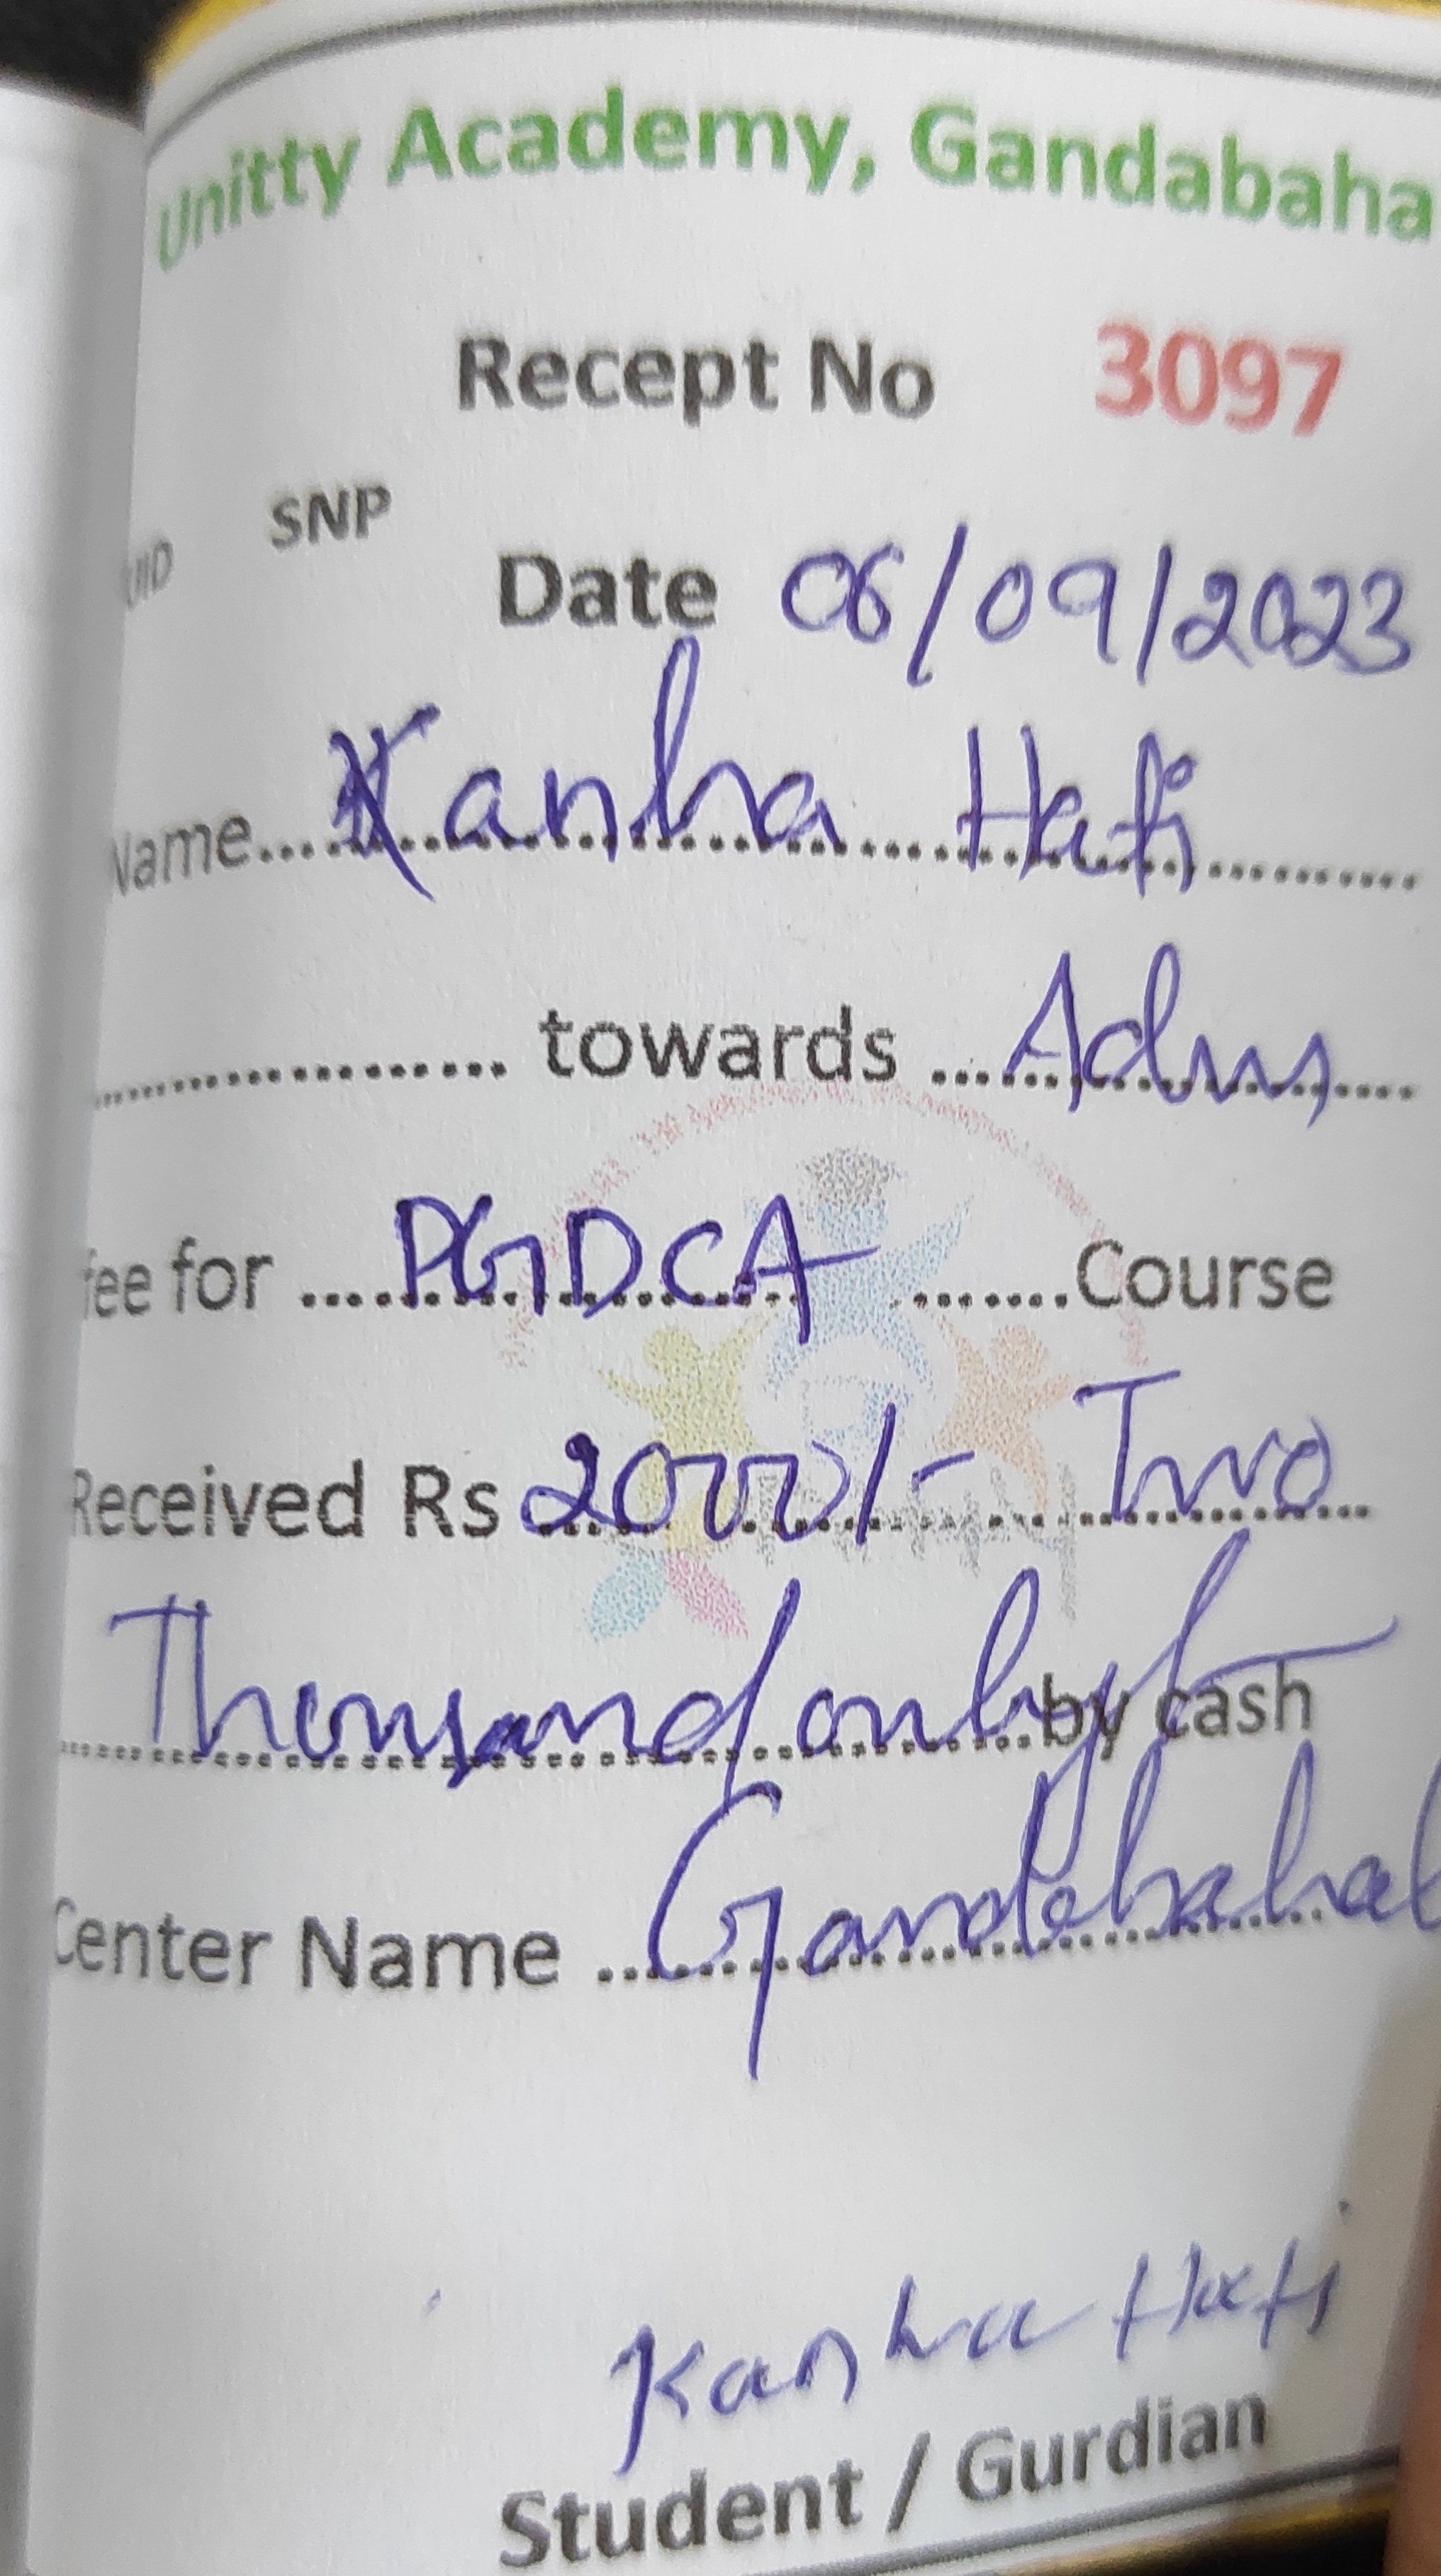 Unitty Academy, Gandabaha
Recept No 3097
UID SNP
Date 06/09/2023
Name.... Kanha Hati
towards ... Adms
fee for .... PGDCA ........Course
Received Rs 2000/- Two
Thousand only by cash
Center Name ... Gandabahal
Kanha Hati
Student / Gurdian